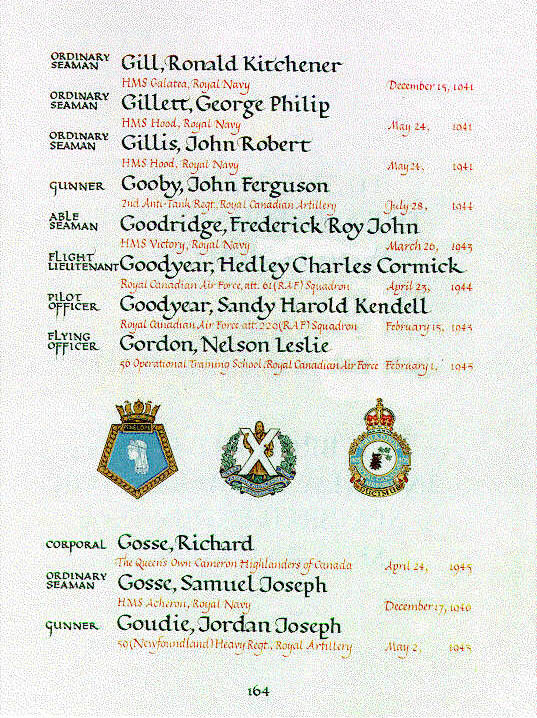 ORDINARY SEAMAN Gill, Ronald Kitchener
HMS Galatea, Royal Navy December 15, 1941
ORDINARY SEAMAN Gillett, George Philip
HMS Hood, Royal Navy May 24, 1941
ORDINARY SEAMAN Gillis, John Robert
HMS Hood, Royal Navy May 24, 1941
GUNNER Gooby, John Ferguson
2nd Anti-Tank Regt., Royal Canadian Artillery July 28, 1944
ABLE SEAMAN Goodridge, Frederick Roy John
HMS Victory, Royal Navy March 26, 1943
FLIGHT LIEUTENANT Goodyear, Hedley Charles Cormick
Royal Canadian Air Force, att. 61 (RAF) Squadron April 23, 1944
PILOT OFFICER Goodyear, Sandy Harold Kendell
Royal Canadian Air Force att. 220 (RAF) Squadron February 15, 1943
FLYING OFFICER Gordon, Nelson Leslie
56 Operational Training School, Royal Canadian Air Force February 1, 1945
PENELOPE
CORPORAL Gosse, Richard
The Queen's Own Cameron Highlanders of Canada April 24, 1945
ORDINARY SEAMAN Gosse, Samuel Joseph
HMS Acheron, Royal Navy December 17, 1940
GUNNER Goudie, Jordan Joseph
59 (Newfoundland) Heavy Regt., Royal Artillery May 2, 1945
164